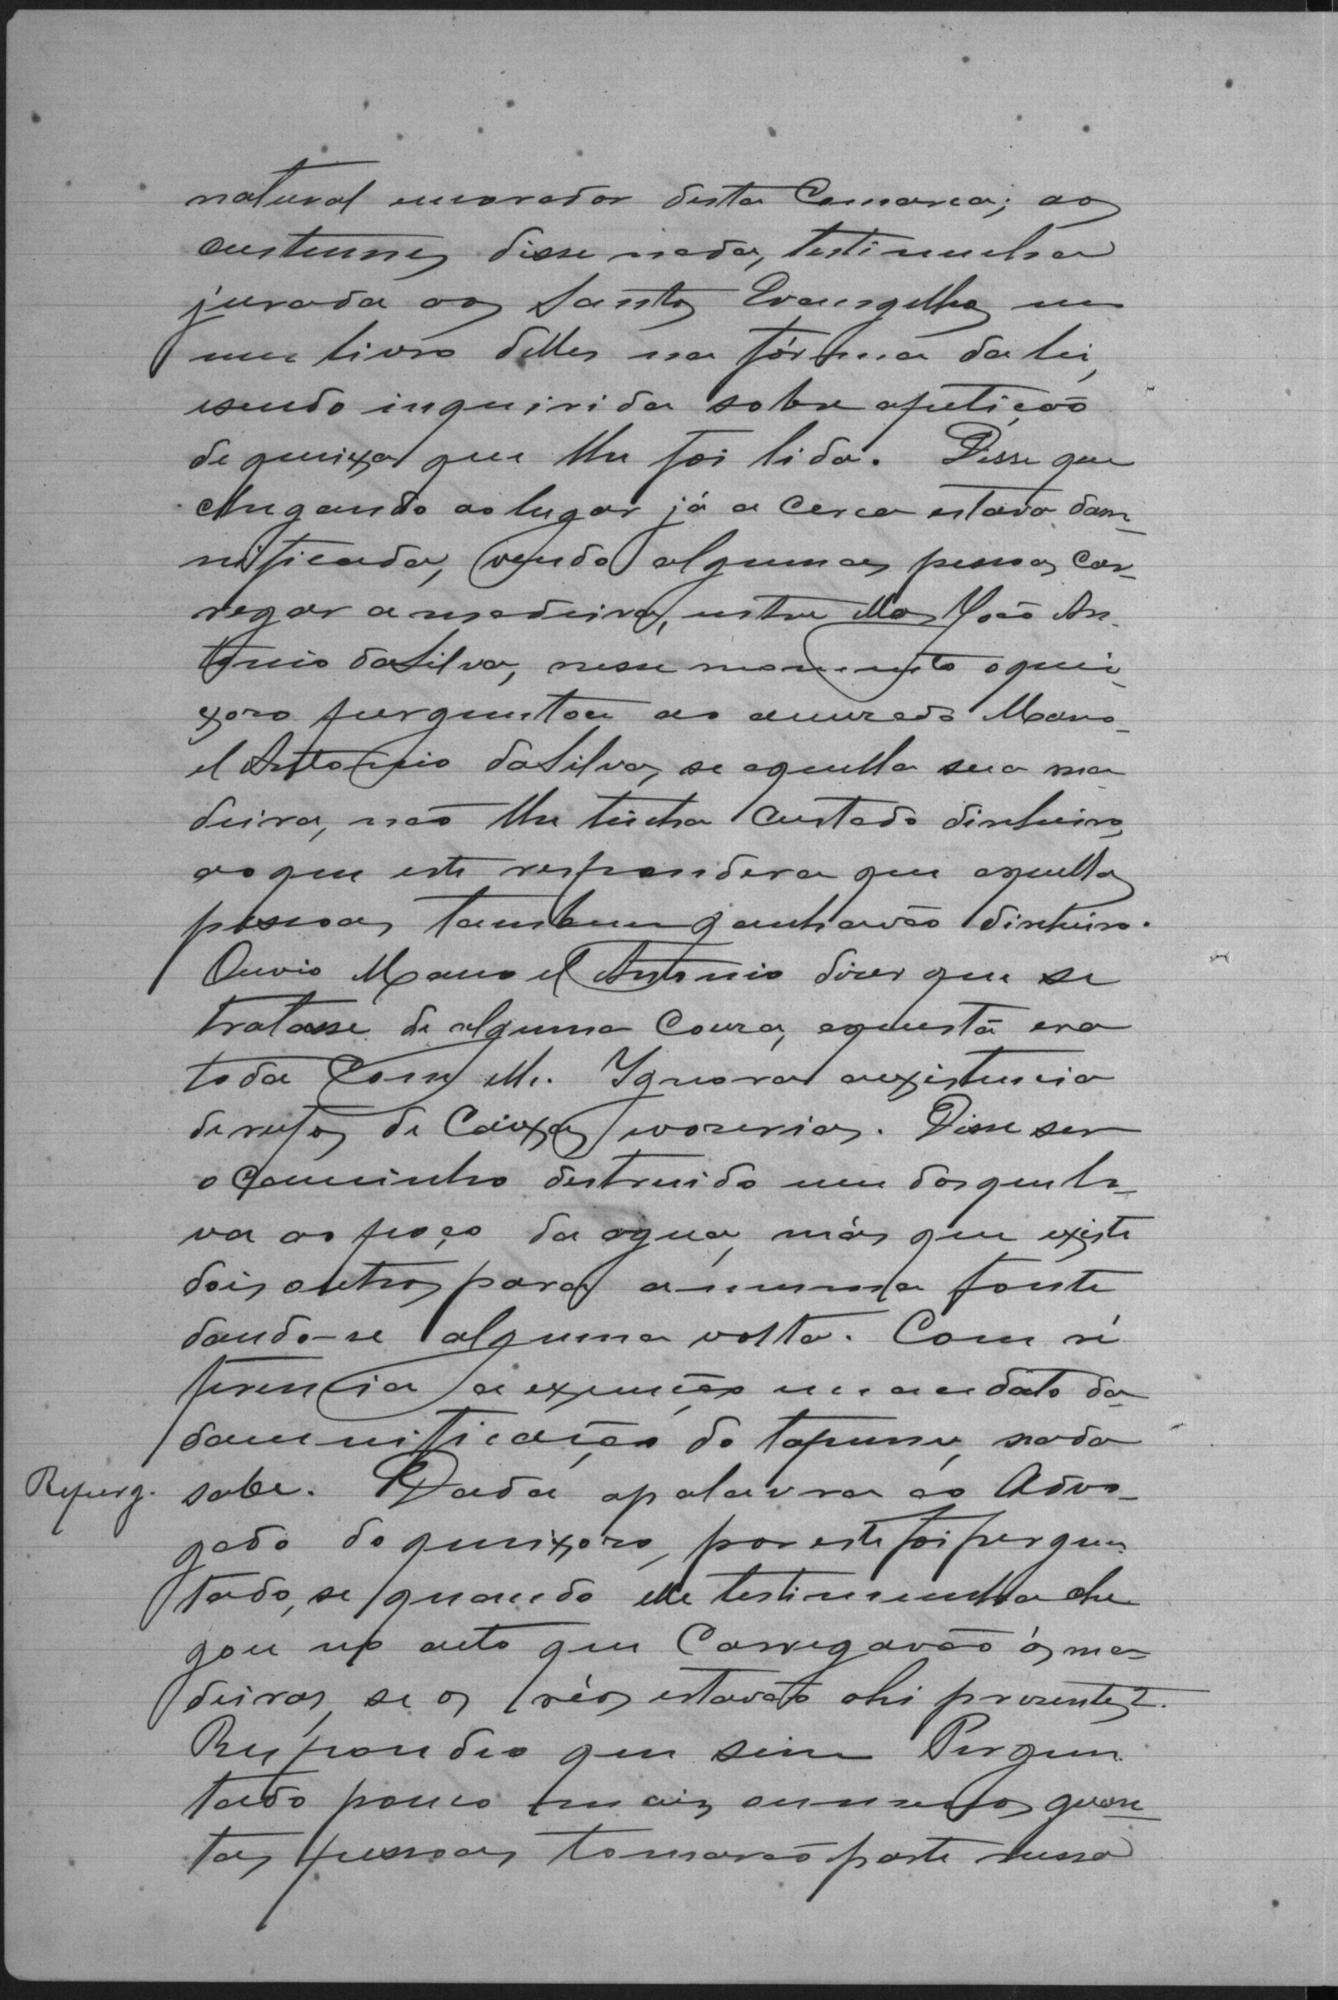 natural e morador desta Comarca; aos
custumes disse nada, testimunha
jurada aos Santos Evangelhos em
um livro delles na fórma da lei,
e sendo inquirida sobre a petição
de queixa que lhe foi lida. Disse que
chegando ao lugar já a cerca estava dam-
nificada, vendo algumas pessoas car-
regar a madeira, entre ellas João An-
tonio da Silva, nesse momento o quei-
xoso perguntou ao accusado Mano-
el Antonio da Silva, se aquella sua ma
deira, não lhe tinha custado dinheiro,
ao que este respondera que aquellas
pessoas tambem ganhavão dinheiro.
Ouvio Manoel Antonio dizer que se
tratasse de alguma couza, a questã era
toda com elle. Ignora a existencia
de de Caixas. Disse ser
o caminho destruido um dos que le-
va ao poço da agua, más que existe
dois outros para a mesma fonte
dando-se alguma volta. Com re
ferencia a execução e mandato da
damnificação do tapume, nada
Reperg. sabe. Dada a palavra ao Advo-
gado do queixoso, por este foi pergun-
tado, se quando elle testimunha che
gou no acto que carregavão ás ma-
deiras, se os réos estavão ahi prezentes?
Respondeo que sim Pergun
tado pouco mais ou menos quan-
tas pessoas tomarão parte nessa